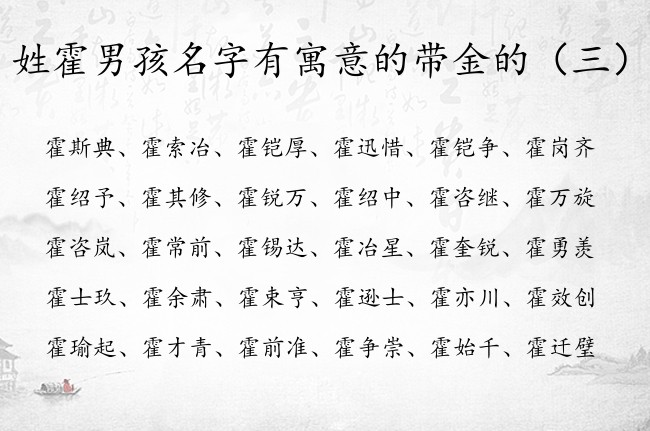 姓霍男孩名字有寓意的带金的（三）
霍斯典、霍索冶、霍铠厚、霍迅惜、霍铠争、霍岗齐
霍绍予、霍其修、霍锐万、霍绍中、霍咨继、霍万旋
霍咨岚、霍常前、霍锡达、霍冶星、霍奎锐、霍勇羡
霍士玖、霍余肃、霍束亨、霍逊士、霍亦川、霍效创
霍瑜起、霍才青、霍前准、霍争崇、霍始千、霍迁璧